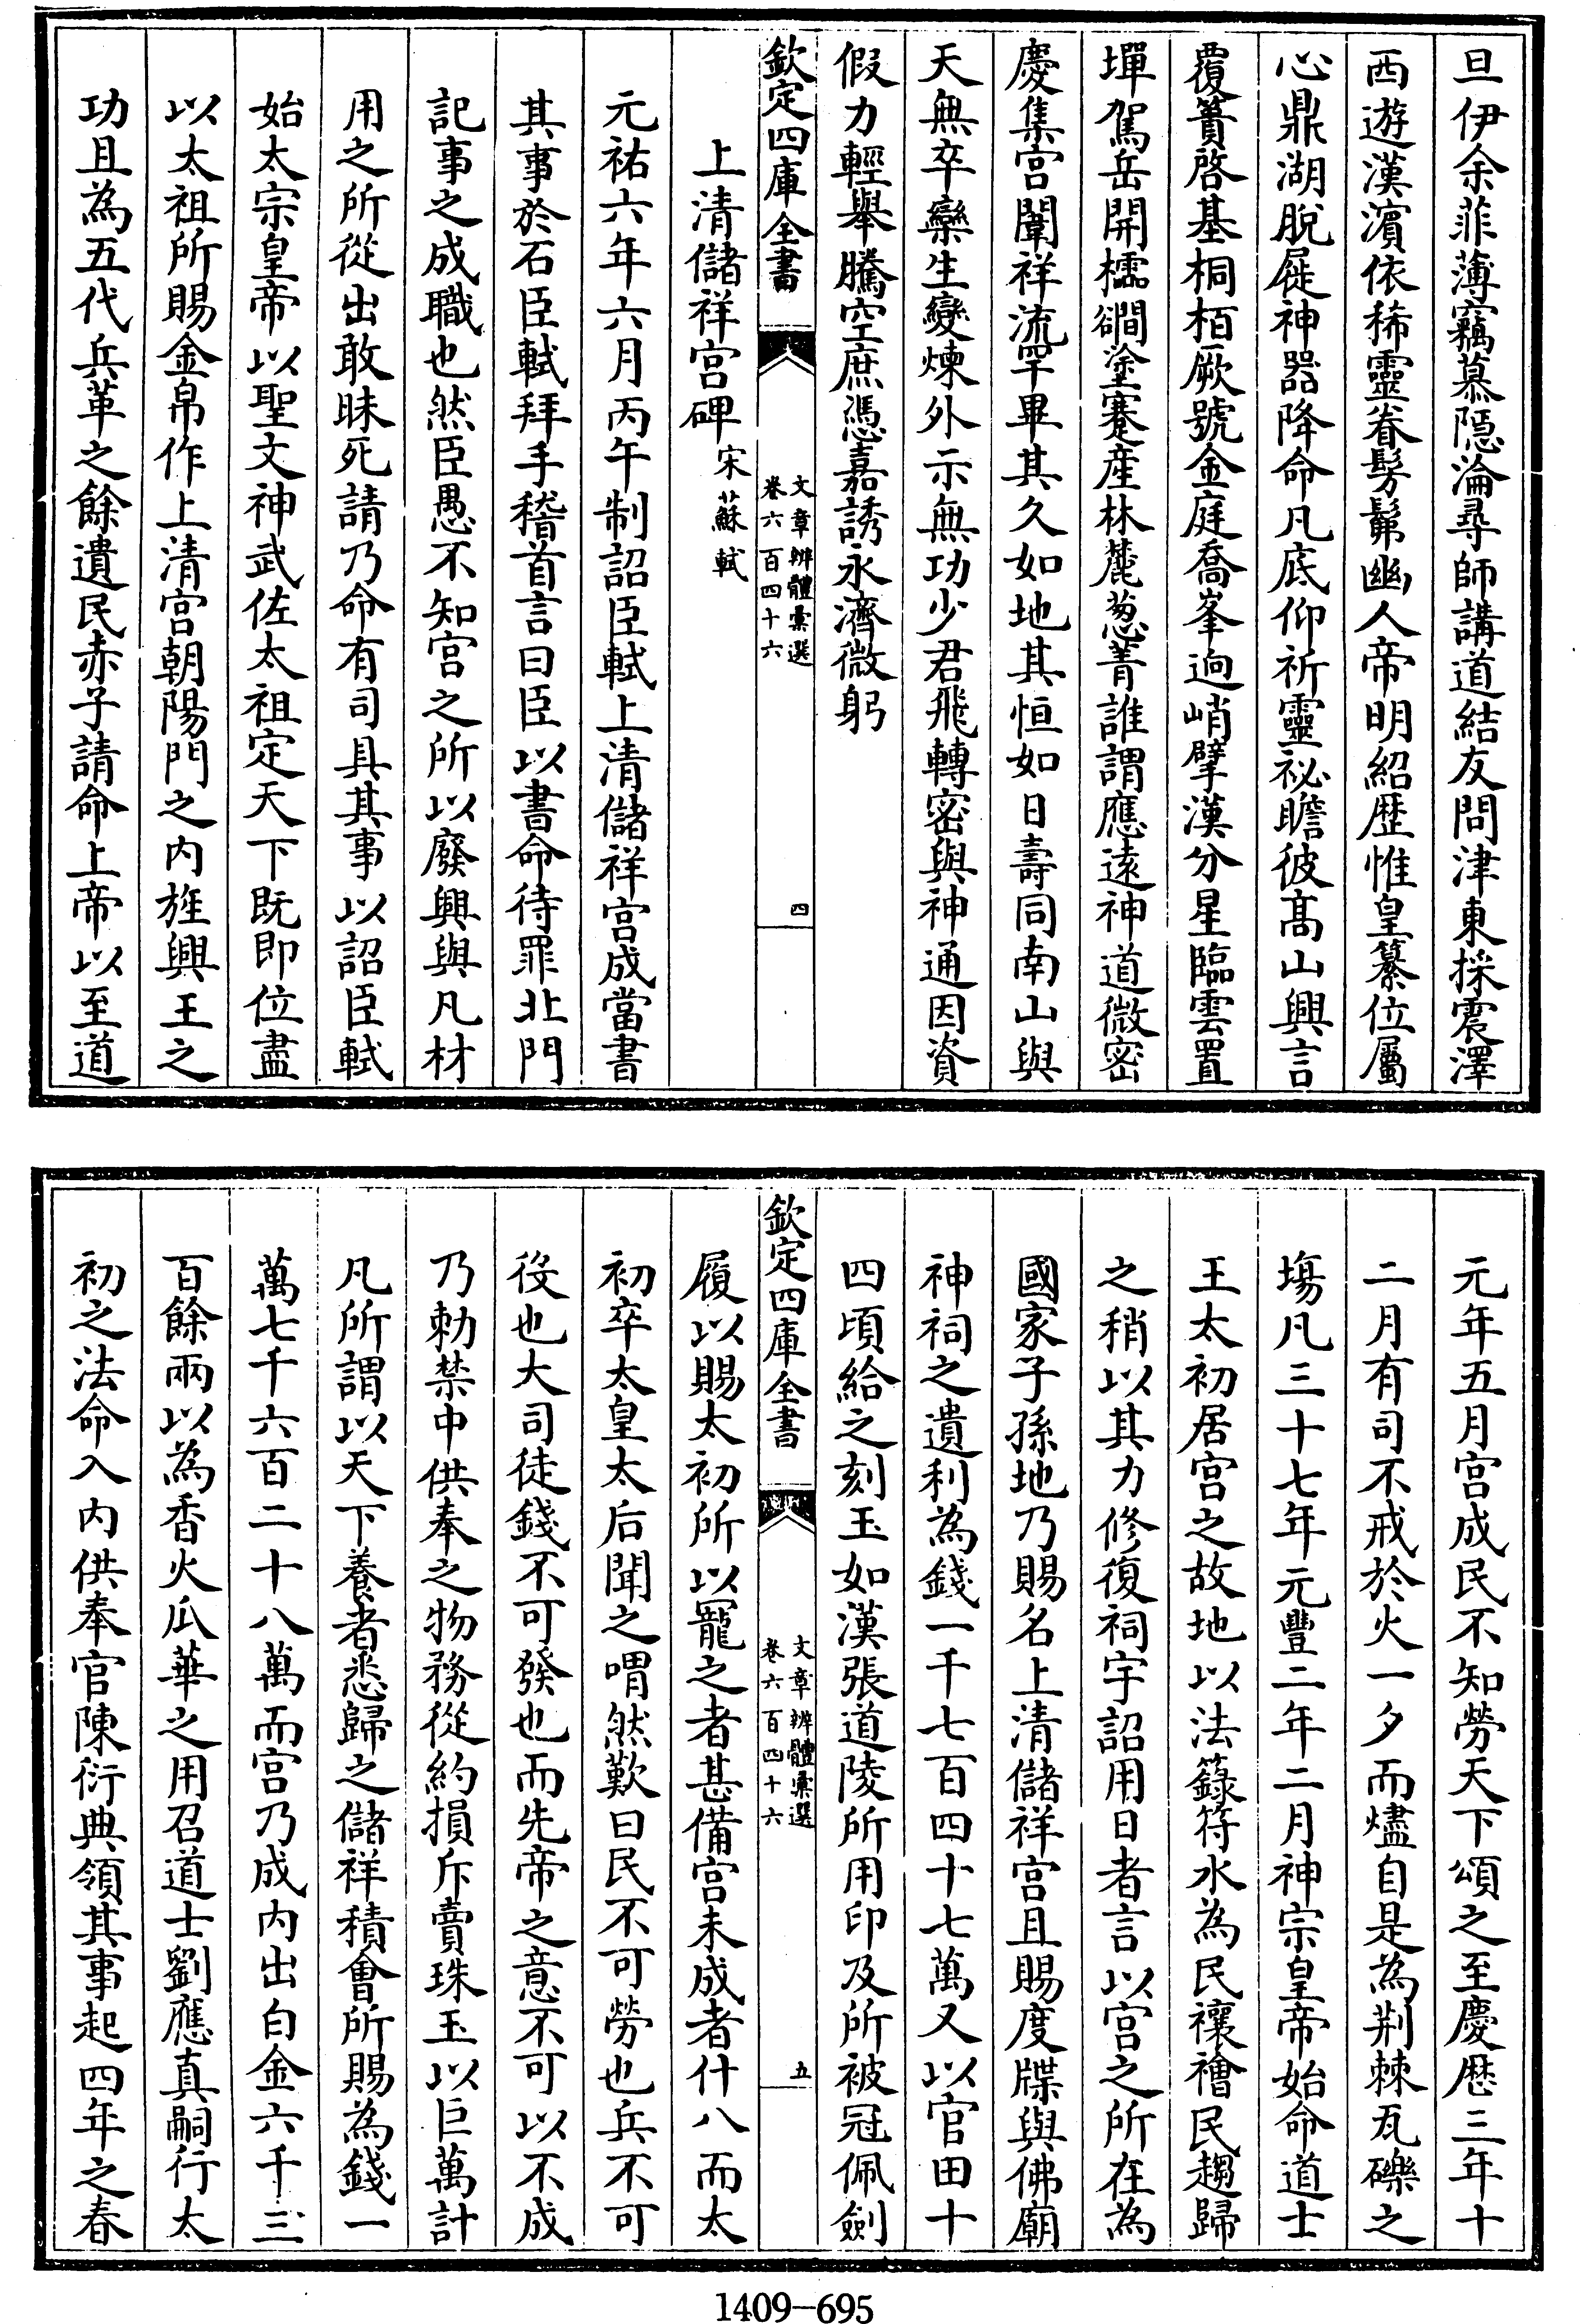 旦伊余菲薄竊慕隱淪尋師講道結友問津東採震澤
西遊漢濵依稀靈眷髣髴幽人帝明紹歴惟皇纂位屬
心鼎湖脫屣神器降命凡底仰祈靈祕瞻彼髙山興言
覆簣啓基桐栢厥號金庭喬峯迥峭擘漢分星臨雲置
墠駕岳開櫺磵塗蹇産林麓葱菁誰謂應逺神道微密
慶集宫闈祥流罕畢其久如地其恒如日壽同南山與
天無卒欒生變煉外示無功少君飛轉密與神通因資
假力輕舉騰空庶憑嘉誘永濟微躬
欽定四庫全書
文章辨體彙選
卷六百四十六
四
上清儲祥宫碑 宋蘇軾
元祐六年六月丙午制詔臣軾上清儲祥宫成當書
其事於石臣軾拜手稽首言曰臣以書命待罪北門
記事之成職也然臣愚不知宫之所以廢興與凡材
用之所從出敢昧死請乃命有司具其事以詔臣軾
始太宗皇帝以聖文神武佐太祖定天下既即位盡
以太祖所賜金帛作上清宫朝陽門之内旌興王之
功且為五代兵革之餘遺民赤子請命上帝以至道
元年五月宫成民不知勞天下頌之至慶歴三年十
二月有司不戒於火一夕而燼自是為荆棘瓦礫之
場凡三十七年元豐二年二月神宗皇帝始命道士
王太初居宫之故地以法籙符水為民禳禬民趨歸
之稍以其力修復祠宇詔用日者言以宫之所在為
國家子孫地乃賜名上清儲祥宫且賜度牒與佛廟
神祠之遺利為錢一千七百四十七萬又以官田十
四頃給之刻玉如漢張道陵所用印及所被冠佩劍
欽定四庫全書
文章辨體彙選
卷六百四十六
五
履以賜太初所以寵之者甚備宫未成者什八而太
初卒太皇太后聞之喟然歎曰民不可勞也兵不可
役也大司徒錢不可發也而先帝之意不可以不成
乃勅禁中供奉之物務從約損斥賣珠玉以巨萬計
凡所謂以天下養者悉歸之儲祥積會所賜為錢一
萬七千六百二十八萬而宫乃成内出白金六千三
百餘兩以為香火瓜華之用召道士劉應真嗣行太
初之法命入内供奉官陳衍典領其事起四年之春
1409-695